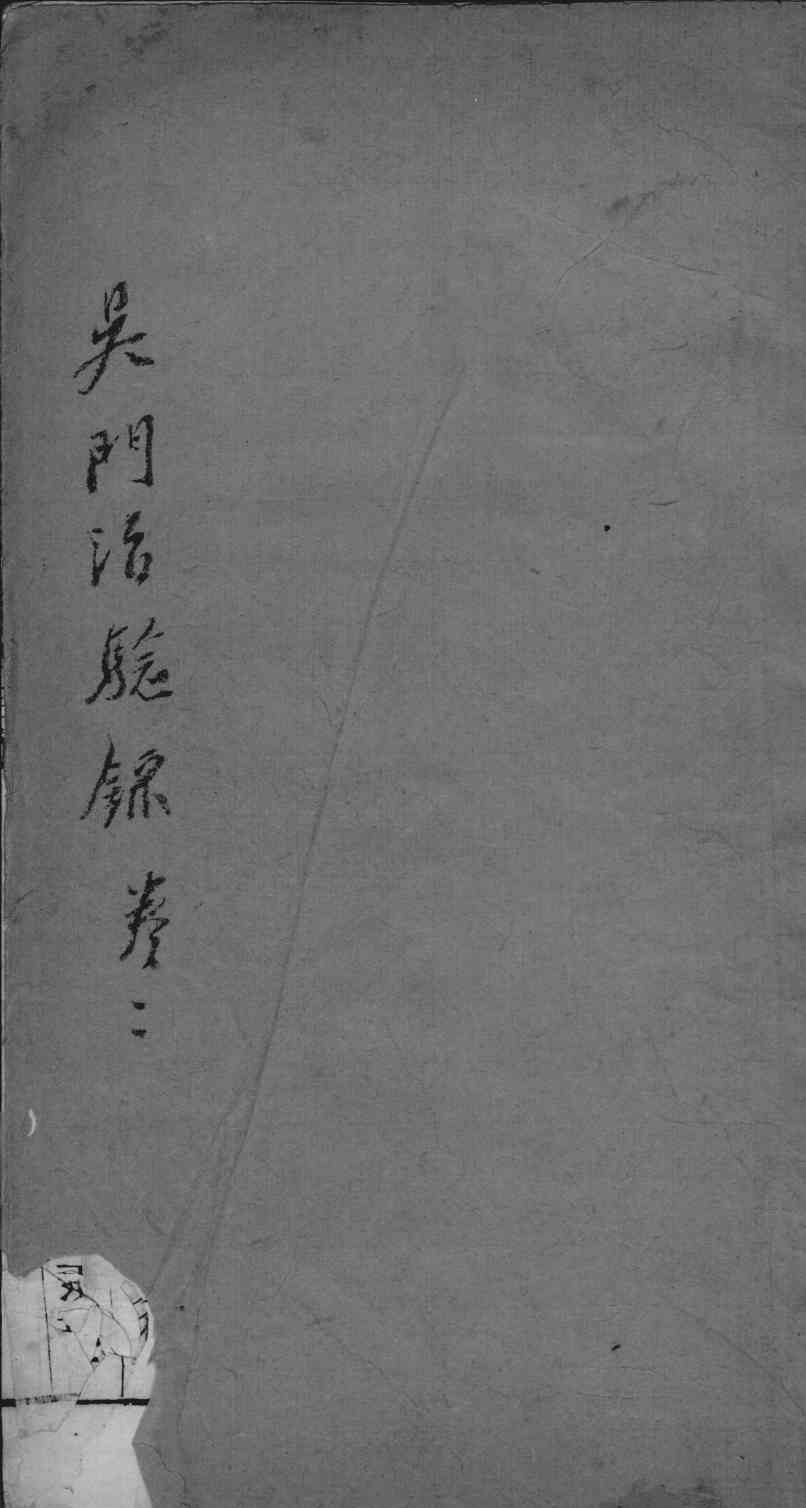 吴門治驗錄 卷二